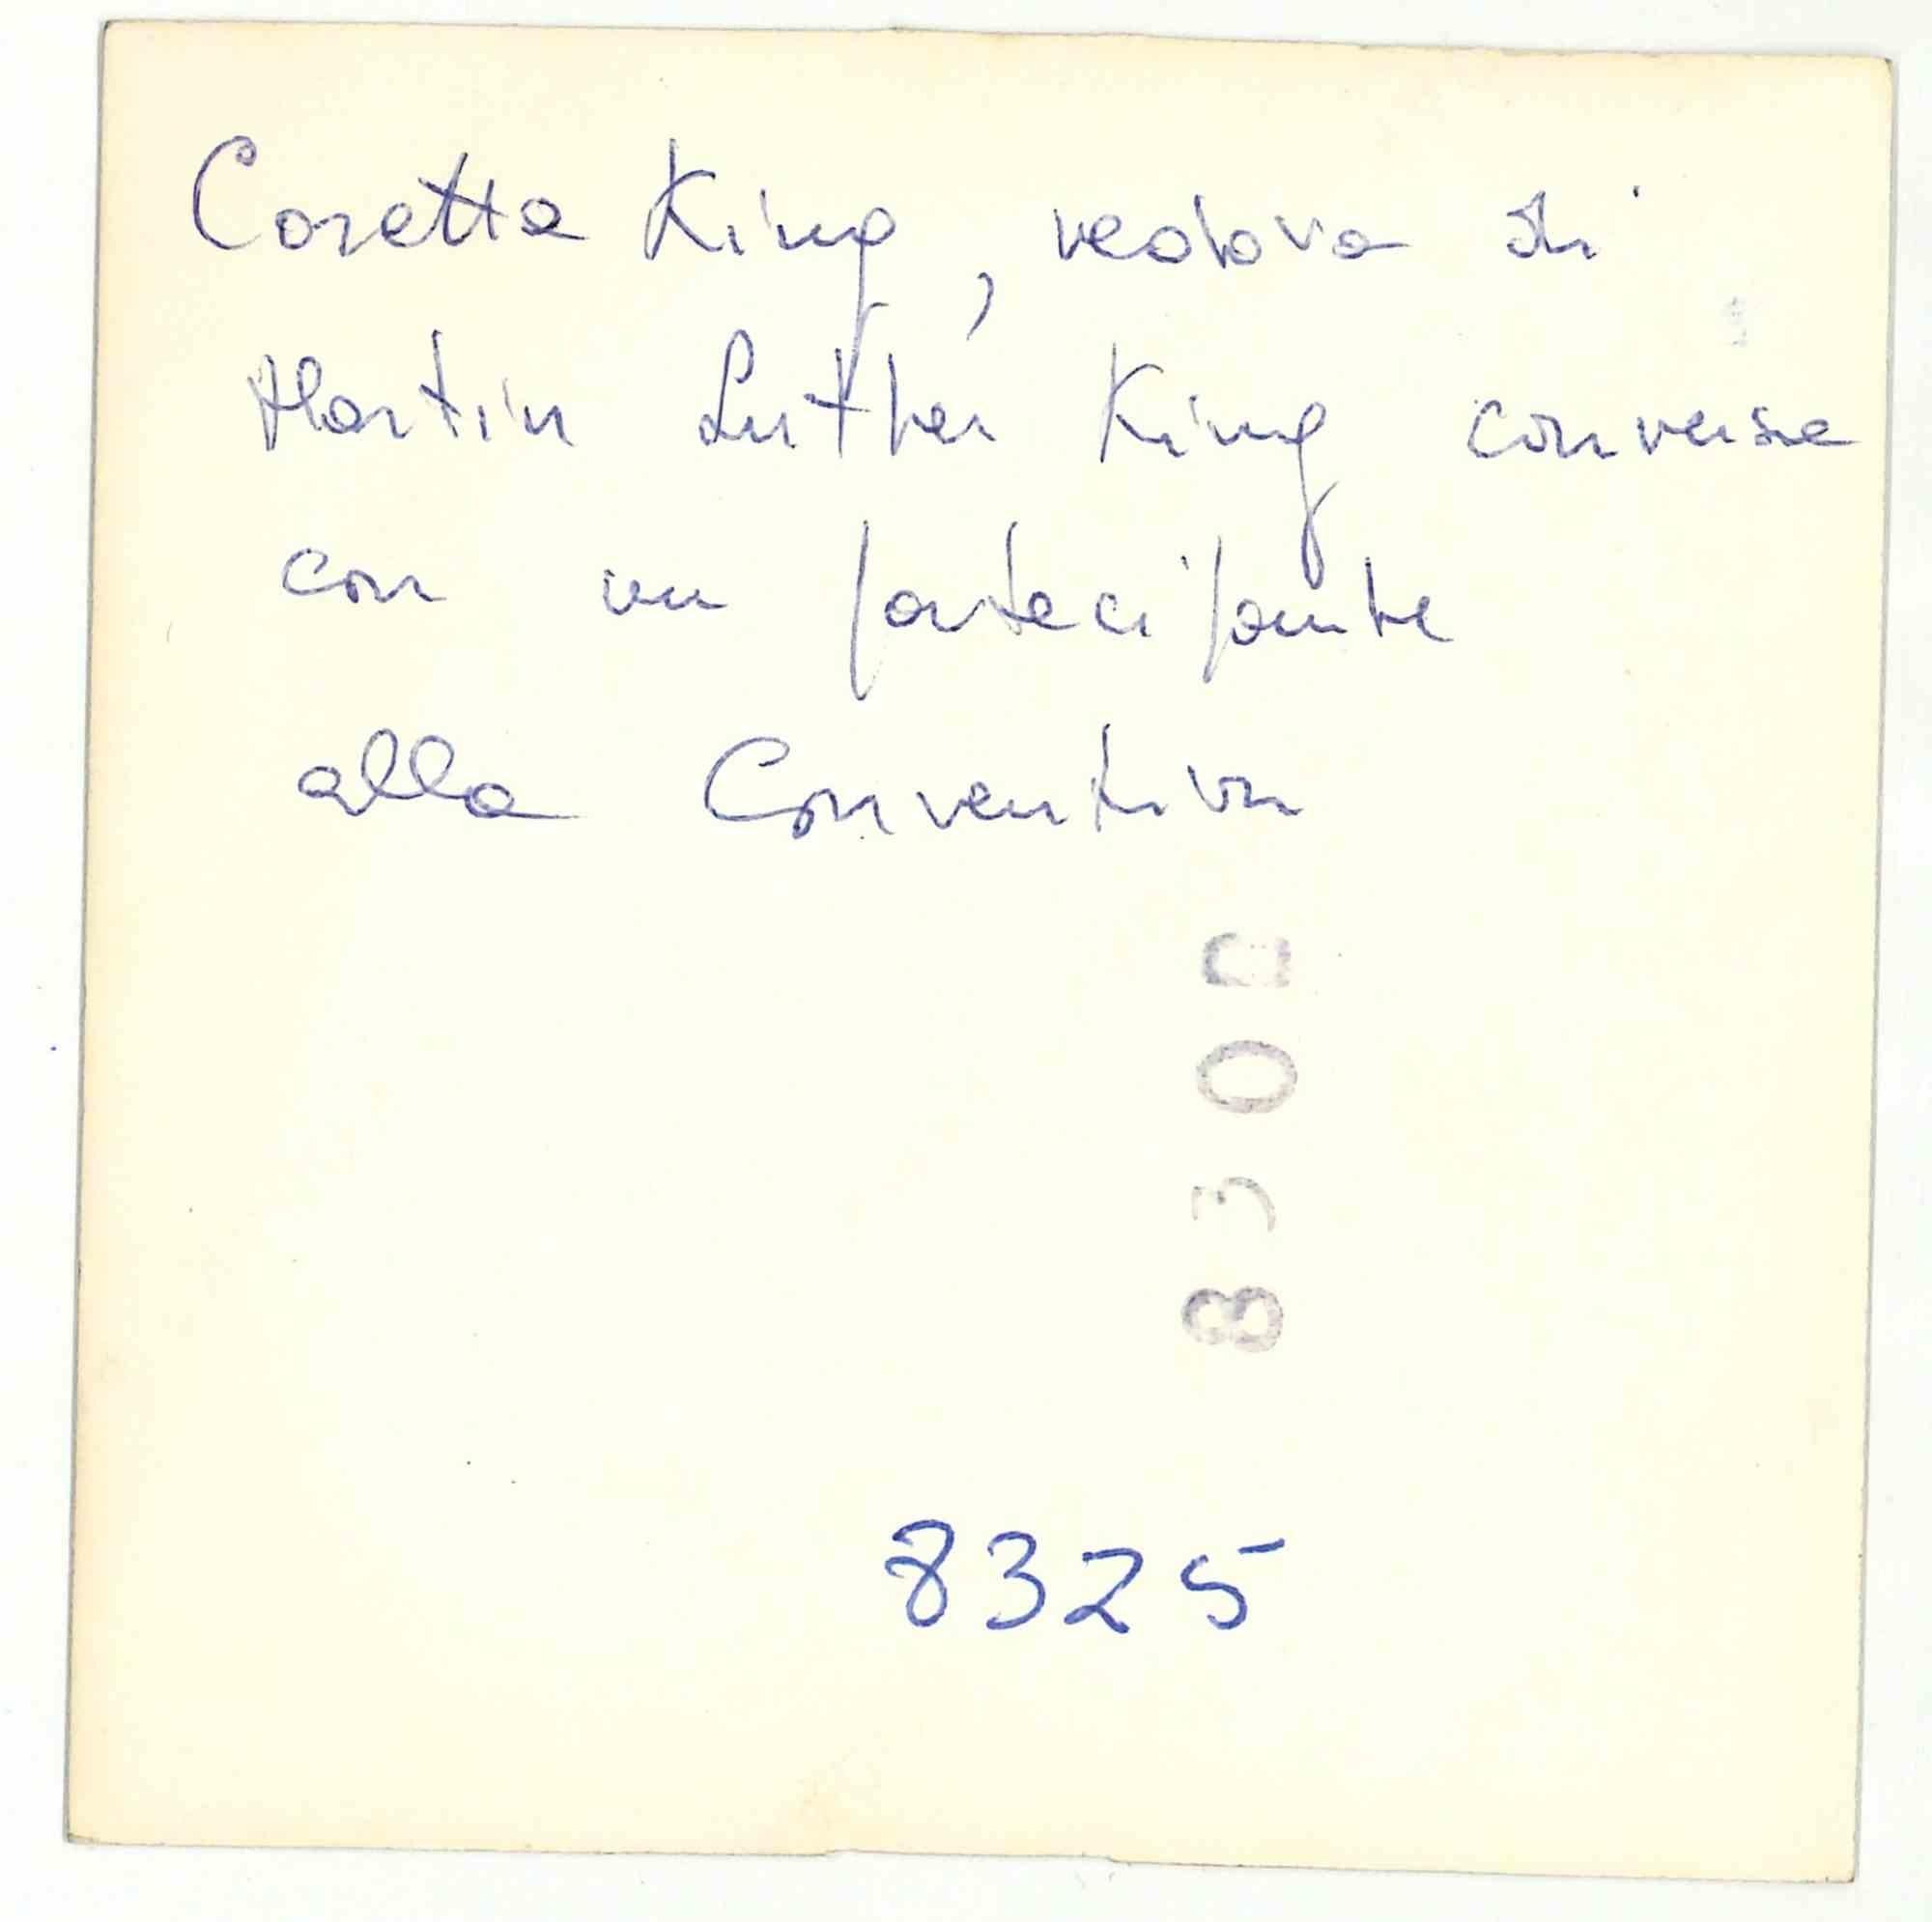 Coretta King, vedova di
Martin Luther King conversa
con un partecipante
alla Convention
8325